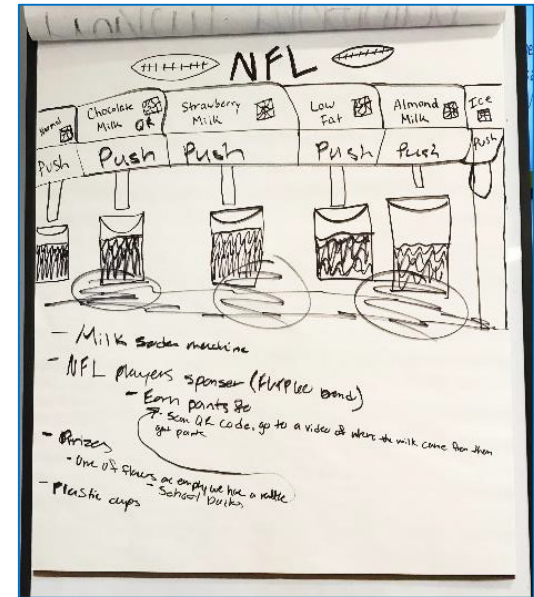 NFL
Normal
Chocolate Milk QR
Strawberry Milk
Low Fat
Almond Milk
Ice
Push Push Push Push Push Push
- Milk machine
- NFL players sponser
- Earn points
- Scan QR code, go to a video of where the milk came from then get points
- Prizes
- One of flavors are empty we have a
- School
- Plastic cups